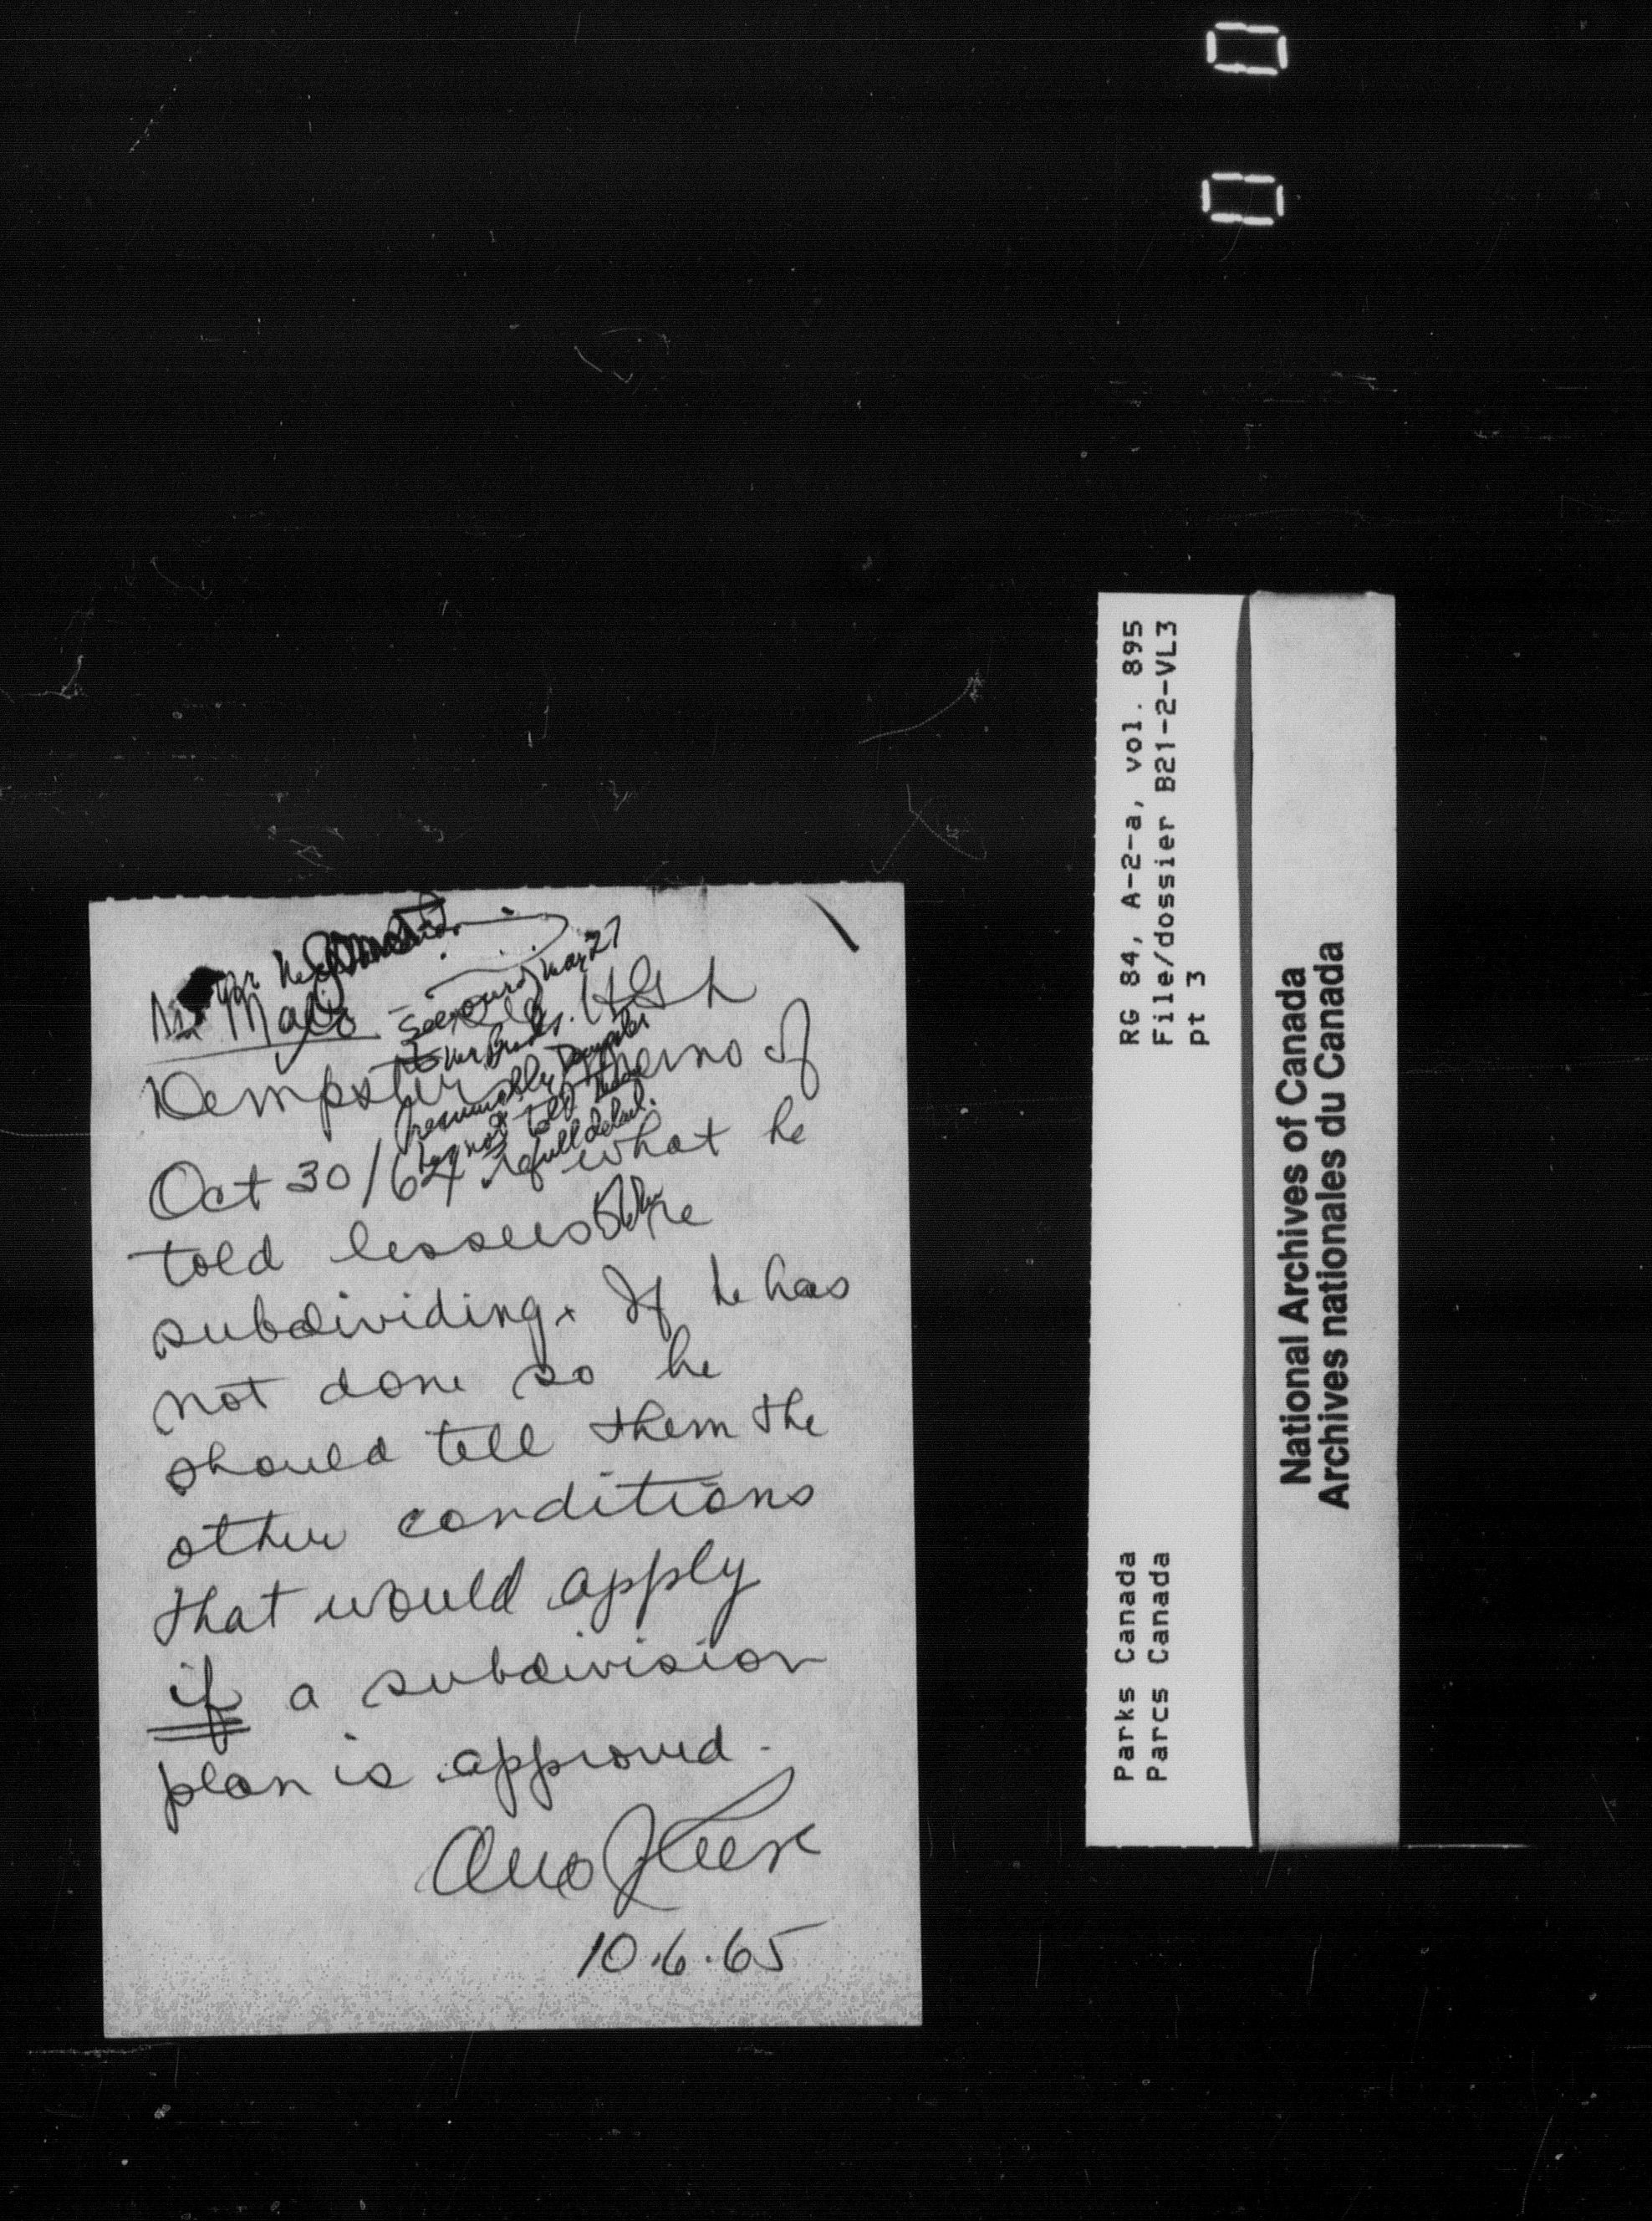 See ours of Mar 27
to
Presumably Dempster
has not told them
full detail.
Dempster memo of
Oct 30/64 re what he
told lessees re
subdividing. If he has
not done so he
should tell them the
other conditions
that would apply
if a subdivision
plan is approved.
10.6.65
RG 84, A-2-a, vol. 895
File/dossier B21-2-VL3
pt 3
Parks Canada
Parcs Canada
National Archives of Canada
Archives nationales du Canada